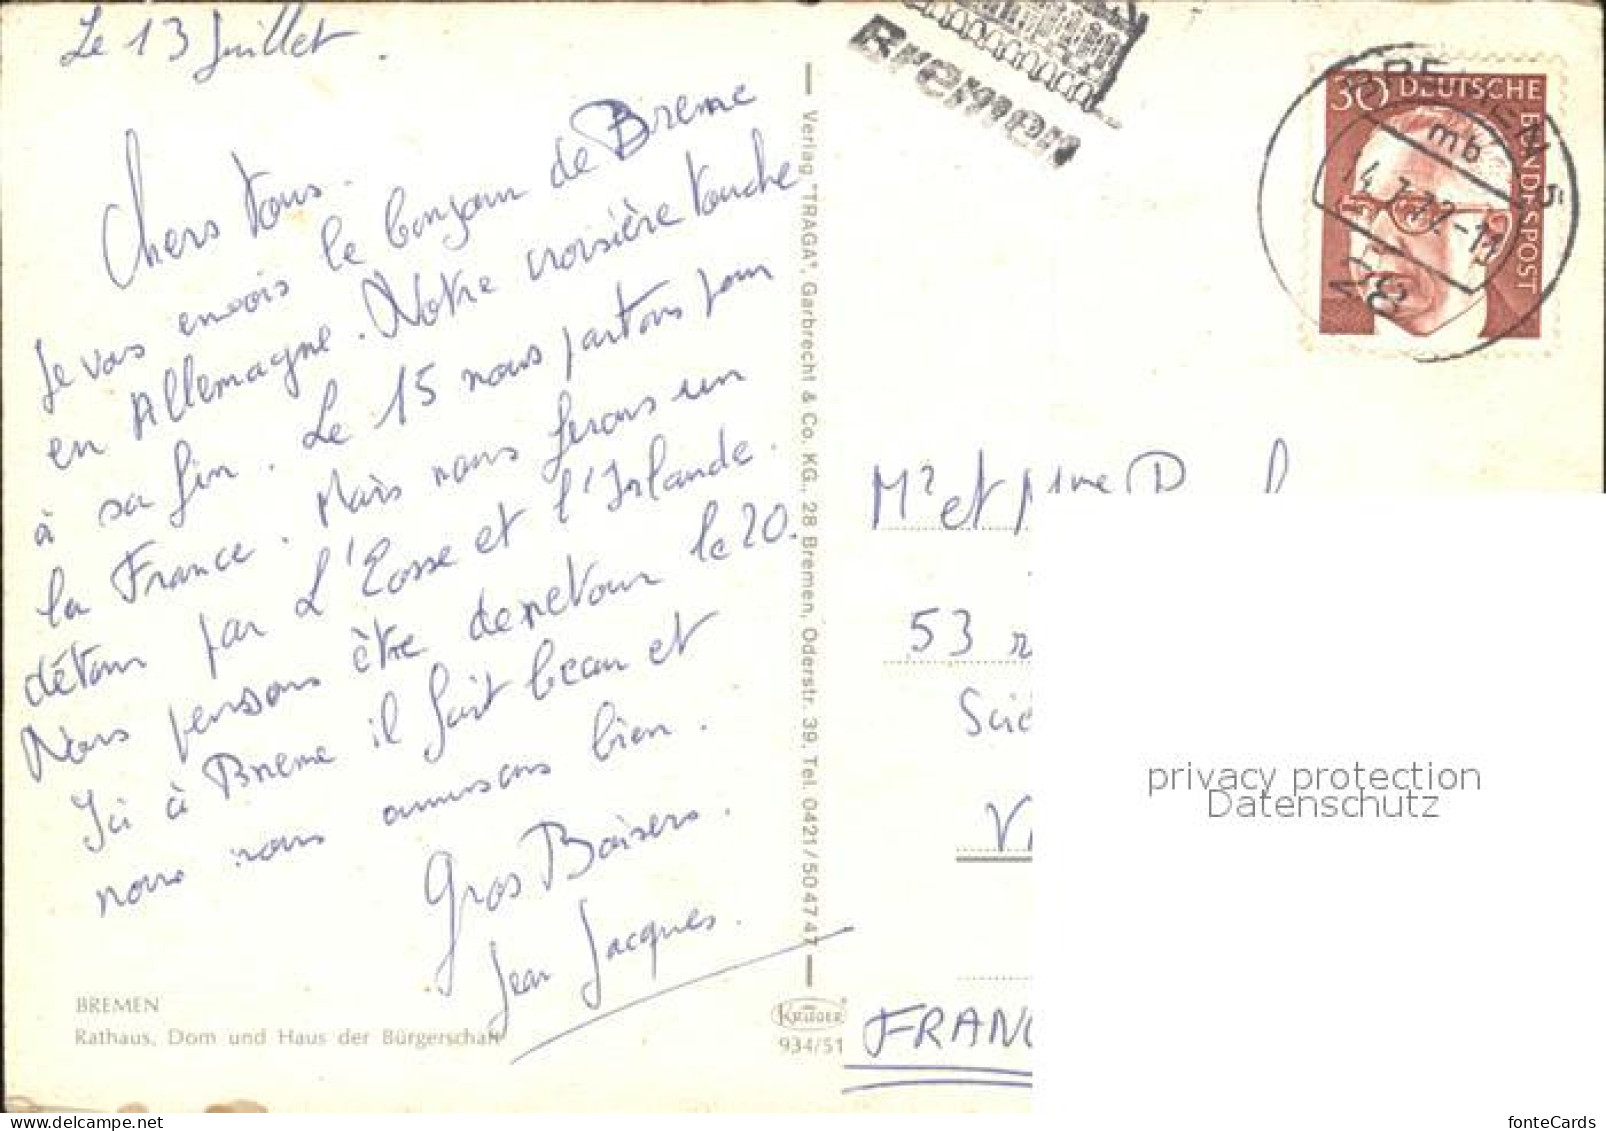 Le 13 Juillet.
Chers tous.
Je vous envois le bonjour de Breme
en Allemagne. Notre croisière touche
à sa fin. Le 15 nous partons pour
la France. Mais nous ferons un
détour par L'Ecosse et l'Irlande.
Nous pensons être de retour le 20.
Ici à Breme il fait beau et
nous nous amusons bien.
Gros Baisers.
Jean Jacques.
BREMEN
Rathaus, Dom und Haus der Bürgerschaft
Verlag "TRAGA", Garbrecht & Co. KG., 28 Bremen, Oderstr. 39, Tel. 0421/50 47 47
KRÜGER
934/51
Bremen
30 DEUTSCHE
BUNDESPOST
BREMEN 5
mb
14.7.72-11
28
Mr et Mme D
53
FRANC
privacy protection
Datenschutz
fonteCards